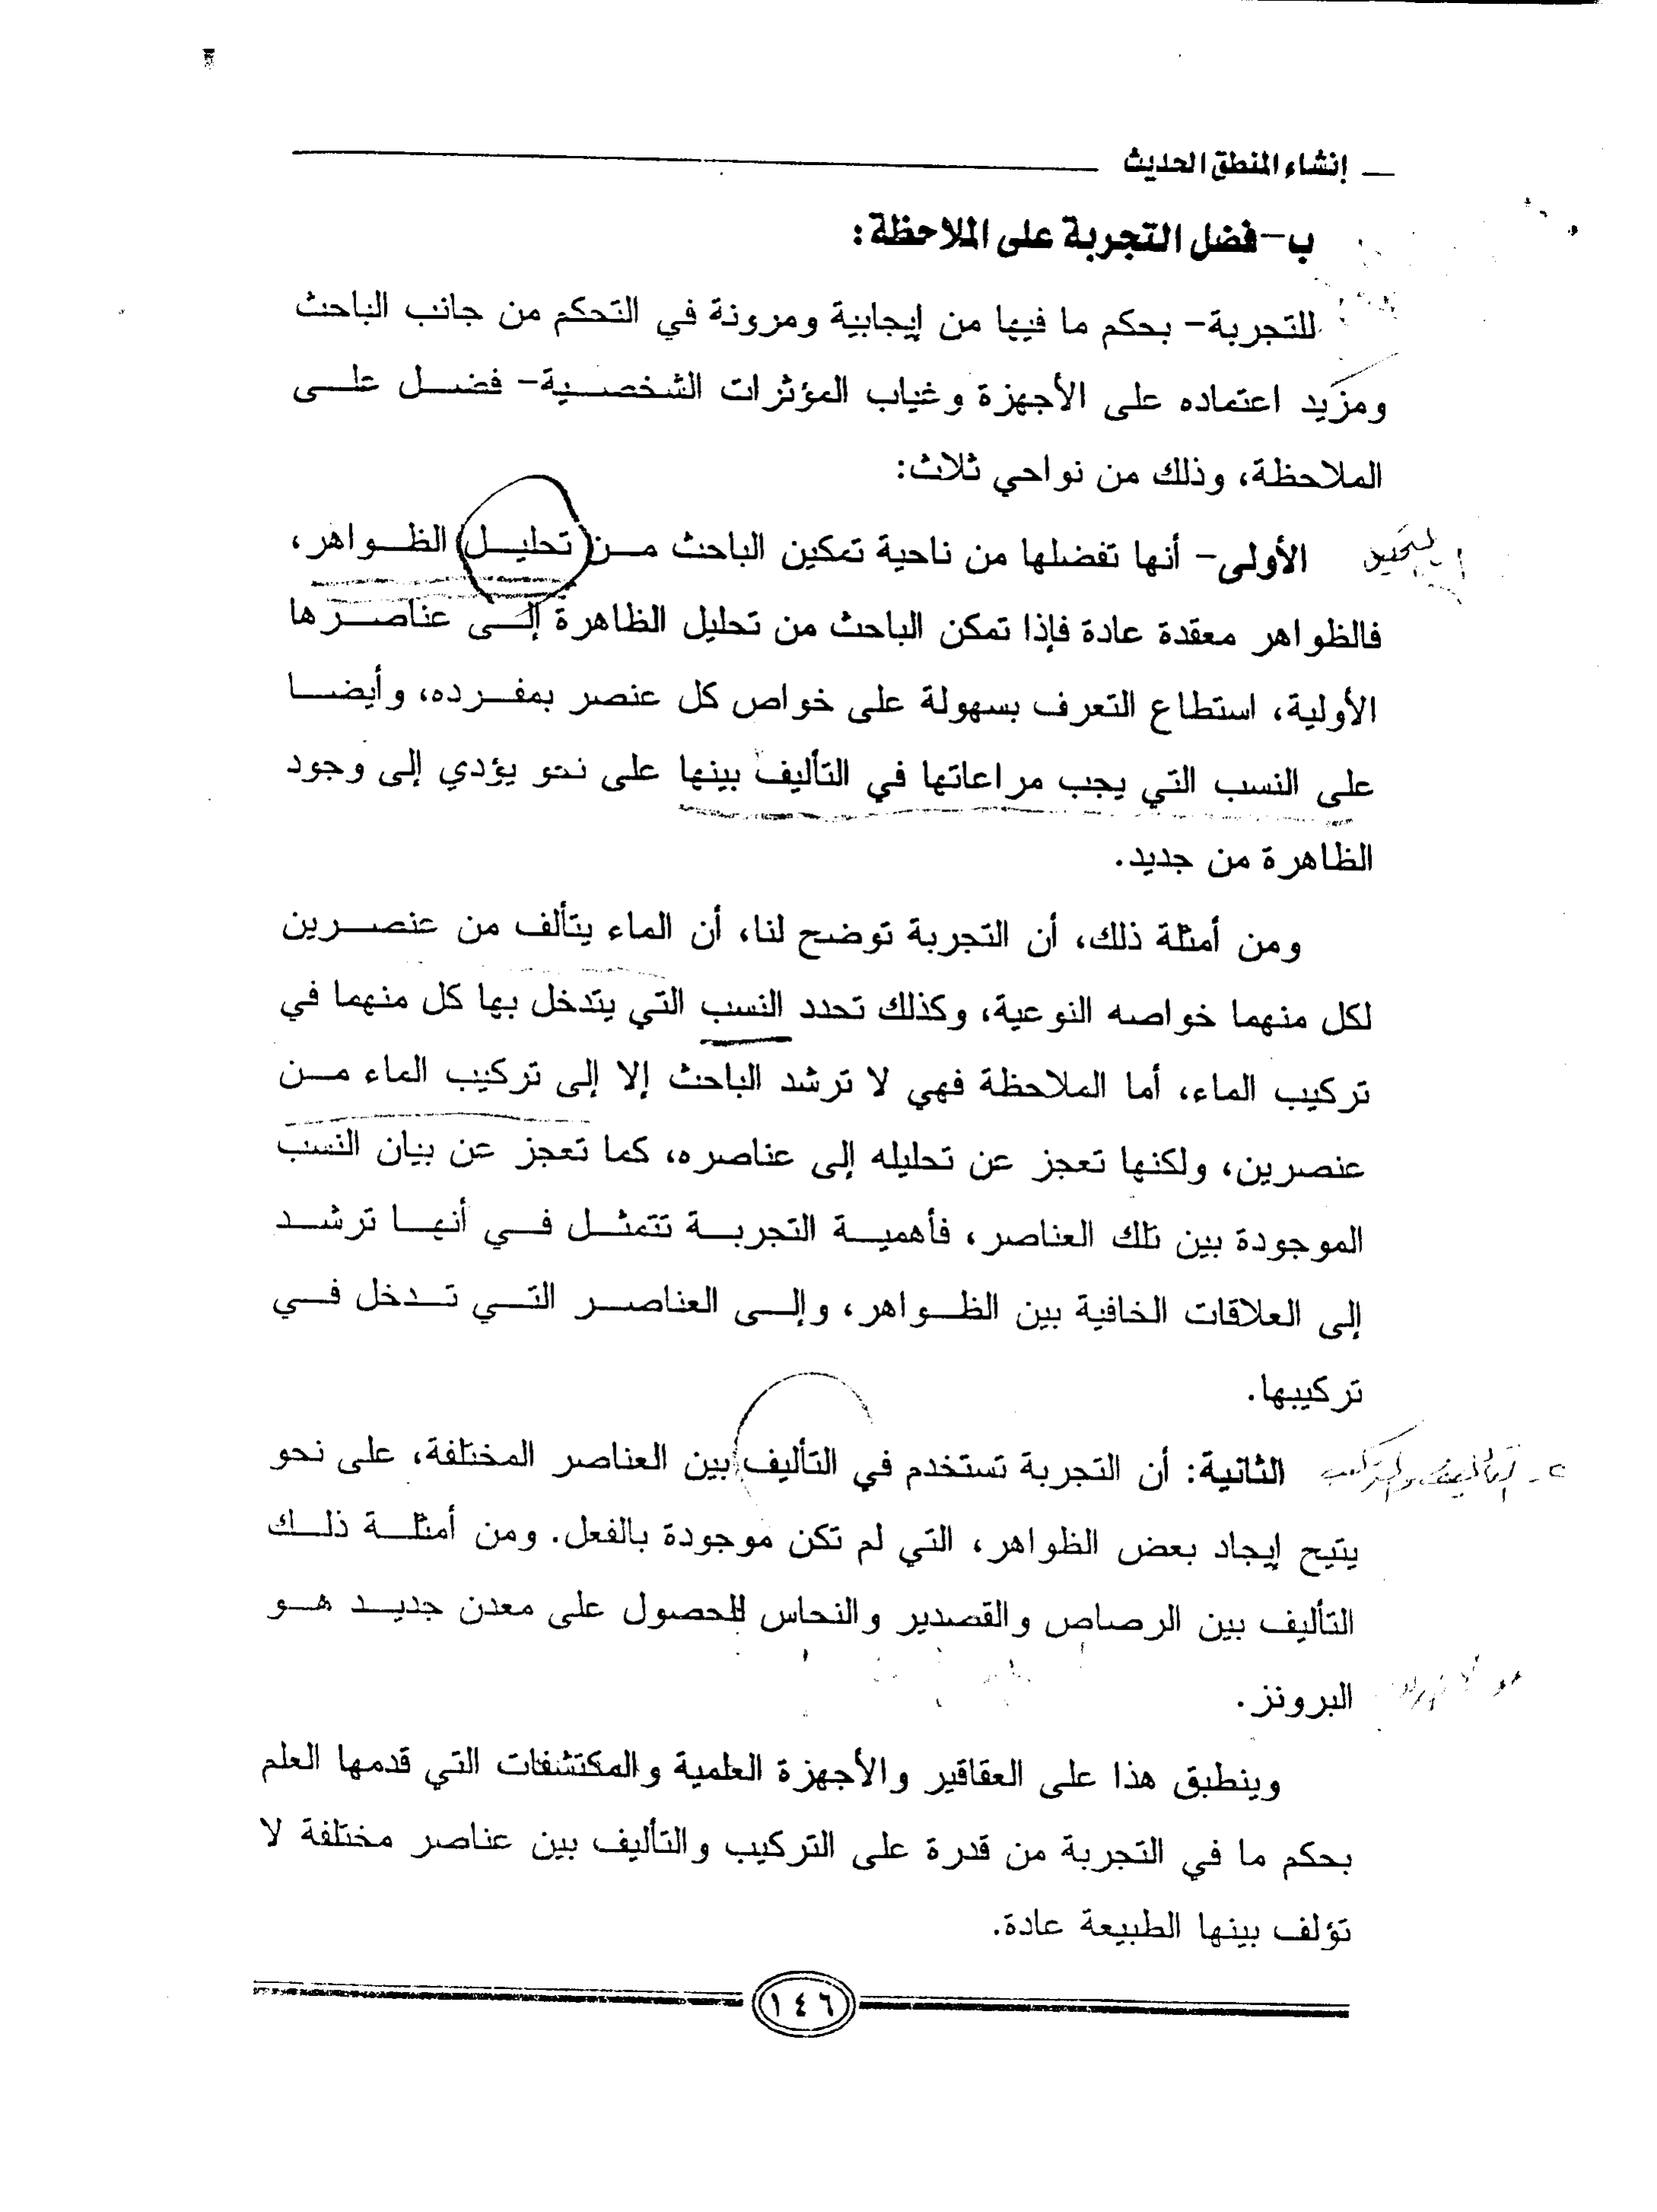 إنشاء المنطق الحديث
ب- فضل التجربة على الملاحظة:
للتجربة- بحكم ما فيها من إيجابية ومرونة في التحكم من جانب الباحث
ومزيد اعتماده على الأجهزة وغياب المؤثرات الشخصية- فضل على
الملاحظة، وذلك من نواحي ثلاث:
الأولى- أنها تفضلها من ناحية تمكين الباحث من تحليل الظواهر،
فالظواهر معقدة عادة فإذا تمكن الباحث من تحليل الظاهرة إلى عناصرها
الأولية، استطاع التعرف بسهولة على خواص كل عنصر بمفرده، وأيضا
على النسب التي يجب مراعاتها في التأليف بينها على نحو يؤدي إلى وجود
الظاهرة من جديد.
ومن أمثلة ذلك، أن التجربة توضح لنا، أن الماء يتألف من عنصرين
لكل منهما خواصه النوعية، وكذلك تحدد النسب التي يتدخل بها كل منهما في
تركيب الماء، أما الملاحظة فهي لا ترشد الباحث إلا إلى تركيب الماء من
عنصرين، ولكنها تعجز عن تحليله إلى عناصره، كما تعجز عن بيان النسب
الموجودة بين تلك العناصر، فأهمية التجربة تتمثل في أنها ترشد
إلى العلاقات الخافية بين الظواهر، وإلى العناصر التي تدخل في
تركيبها.
الثانية: أن التجربة تستخدم في التأليف بين العناصر المختلفة، على نحو
يتيح إيجاد بعض الظواهر، التي لم تكن موجودة بالفعل. ومن أمثلة ذلك
التأليف بين الرصاص والقصدير والنحاس للحصول على معدن جديد هو
البرونز.
وينطبق هذا على العقاقير والأجهزة العلمية والمكتشفات التي قدمها العلم
بحكم ما في التجربة من قدرة على التركيب والتأليف بين عناصر مختلفة لا
تؤلف بينها الطبيعة عادة.
١٤٦